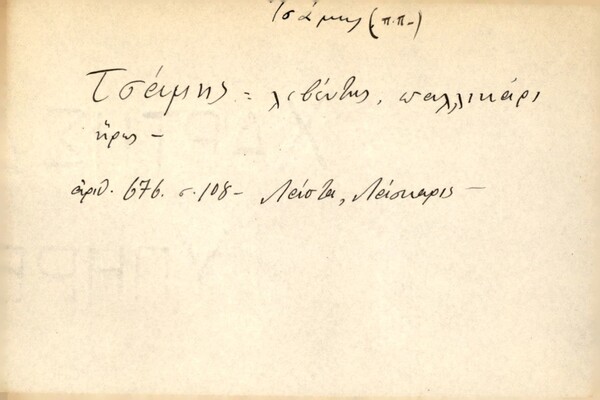 Τσάμης (π.π.-)
Τσάμης = λεβέντης, παλλικάρι
ἥρως -
ἀριθ. 676. σ. 108 - Λάϊστα, Λάσκαρις -